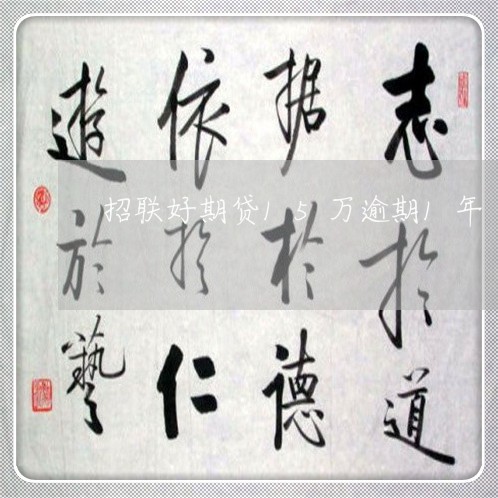 志於道
据於德
依於仁
遊於藝
招联好期贷15万逾期1年